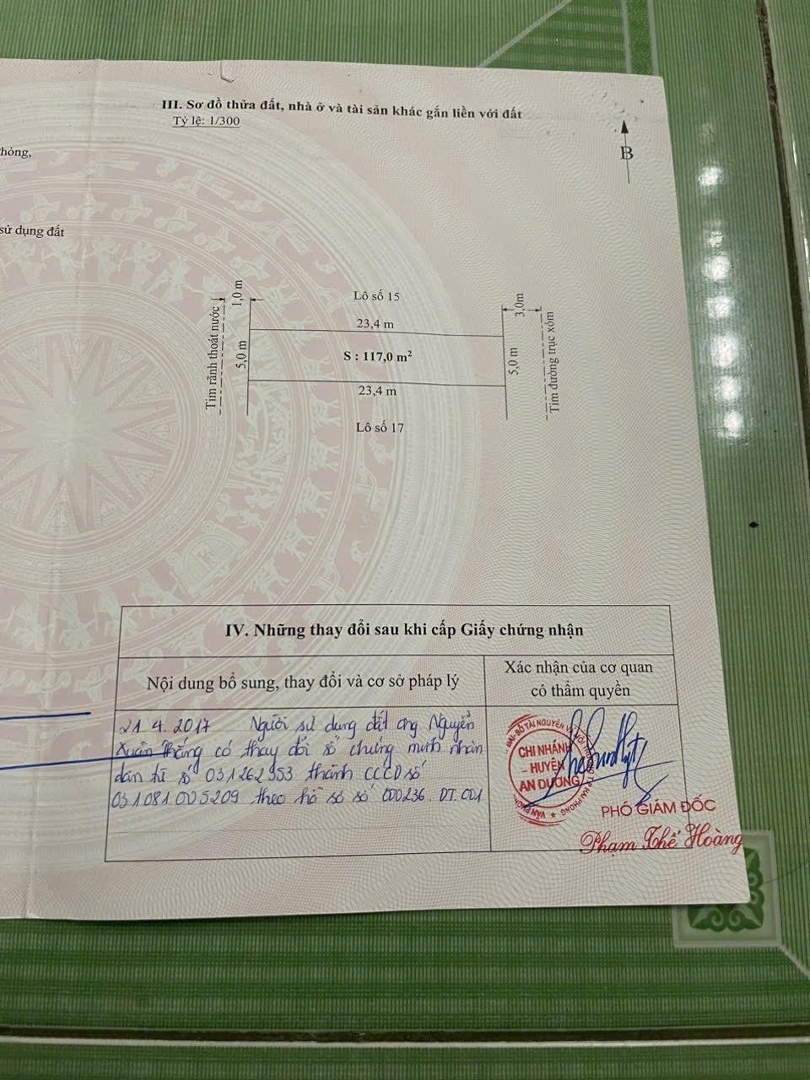 III. Sơ đồ thửa đất, nhà ở và tài sản khác gắn liền với đất
Tỷ lệ: 1/300
hòng,
B
sử dụng đất
Lô số 15
23,4 m
S : 117,0 m²
23,4 m
Lô số 17
Tim rãnh thoát nước
1,0 m
5,0 m
3,0m
5,0 m
Tim đường trục xóm
IV. Những thay đổi sau khi cấp Giấy chứng nhận
Nội dung bổ sung, thay đổi và cơ sở pháp lý
Xác nhận của cơ quan
có thẩm quyền
21.4.2017 Người sử dụng đất ông Nguyễn
Xuân Thắng có thay đổi số chứng minh nhân
dân từ số 031262953 thành CCCD số
031081005209 theo hồ sơ số 000236.DT.001
CHI NHÁNH
HUYỆN
AN DƯƠNG
PHÓ GIÁM ĐỐC
Phạm Thế Hoàng